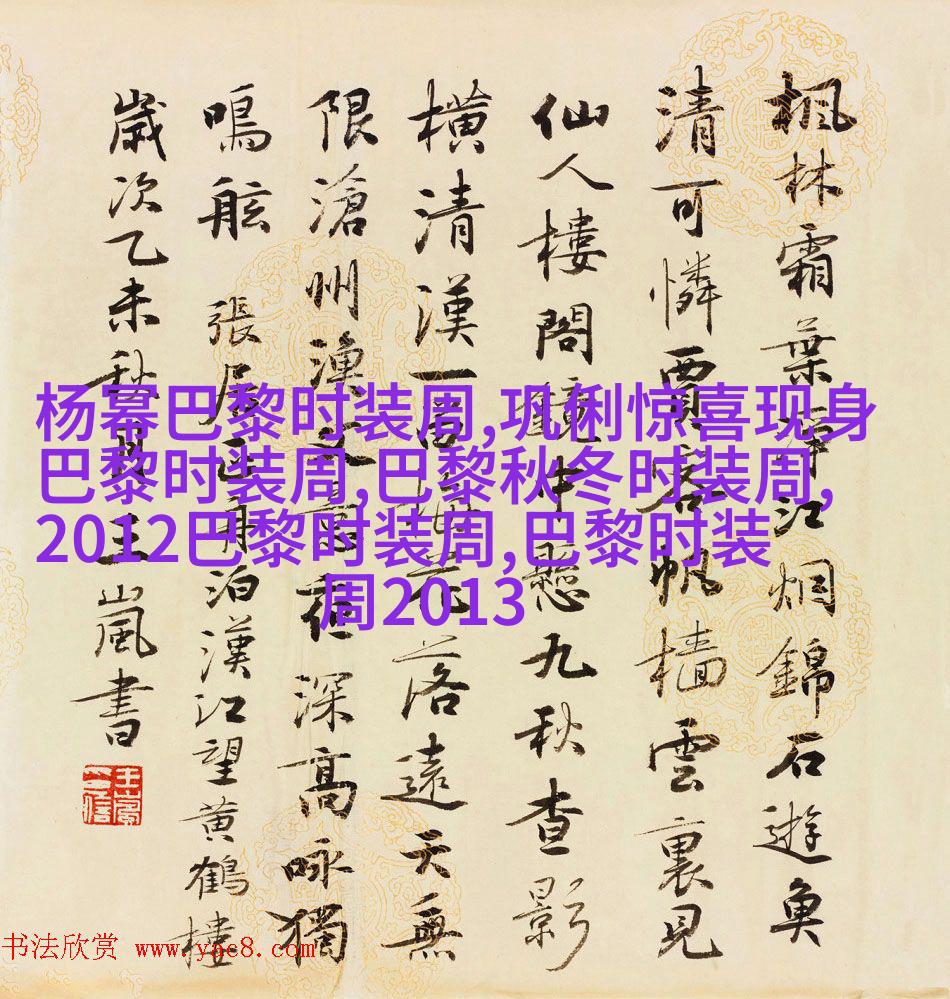 楓林霜葉淨江烟錦石遊魚
清可憐賈客帆檣雲裏見
仙人樓閣鏡中懸九秋查影
橫清漢一笛梅花落遠天無
限滄州漁父意夜深高咏獨
鳴舷 張居正舟泊漢江望黃鶴樓
歲次乙未秋月王嵐書
杨幂巴黎时装周,巩俐惊喜现身
巴黎时装周,巴黎秋冬时装周,
2012巴黎时装周,巴黎时装
周2013
书法欣赏 www.yac8.com